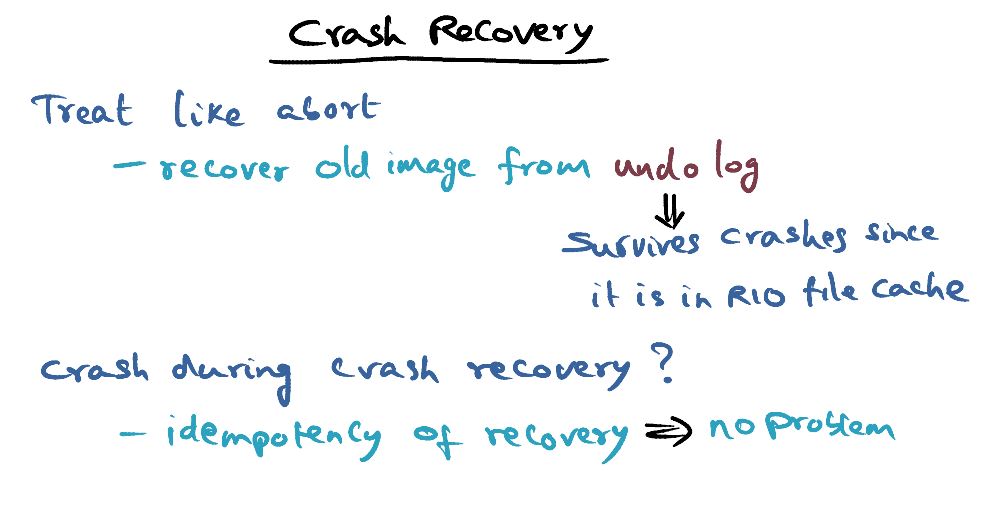 Crash Recovery
Treat like abort
- recover old image from undo log
⇓
Survives crashes since
it is in RIO file cache
Crash during crash recovery?
- idempotency of recovery ⇒ no problem